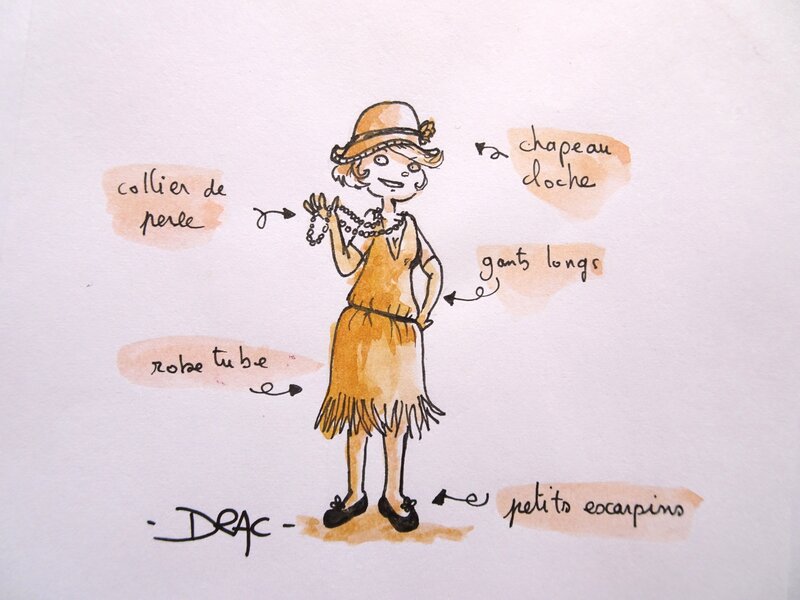 chapeau
cloche
collier de
perle
gants longs
robe tube
petits escarpins
- DRAC -